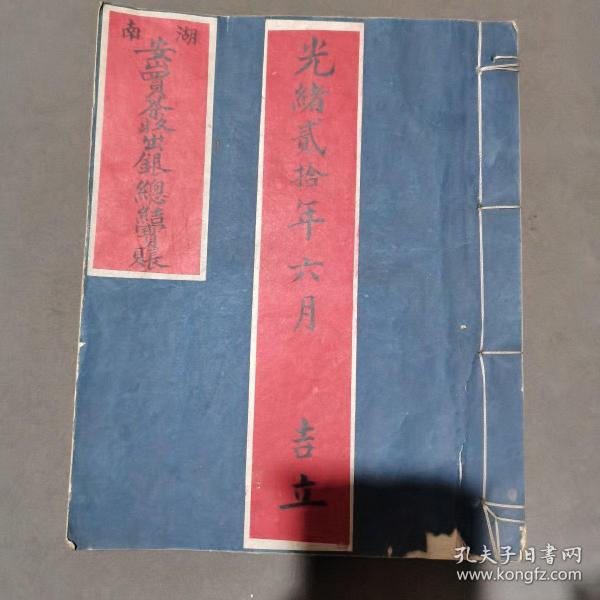 光緒貳拾年六月 吉立
湖南
安買茶收出銀總結賬
孔夫子旧书网
www.kongfz.com